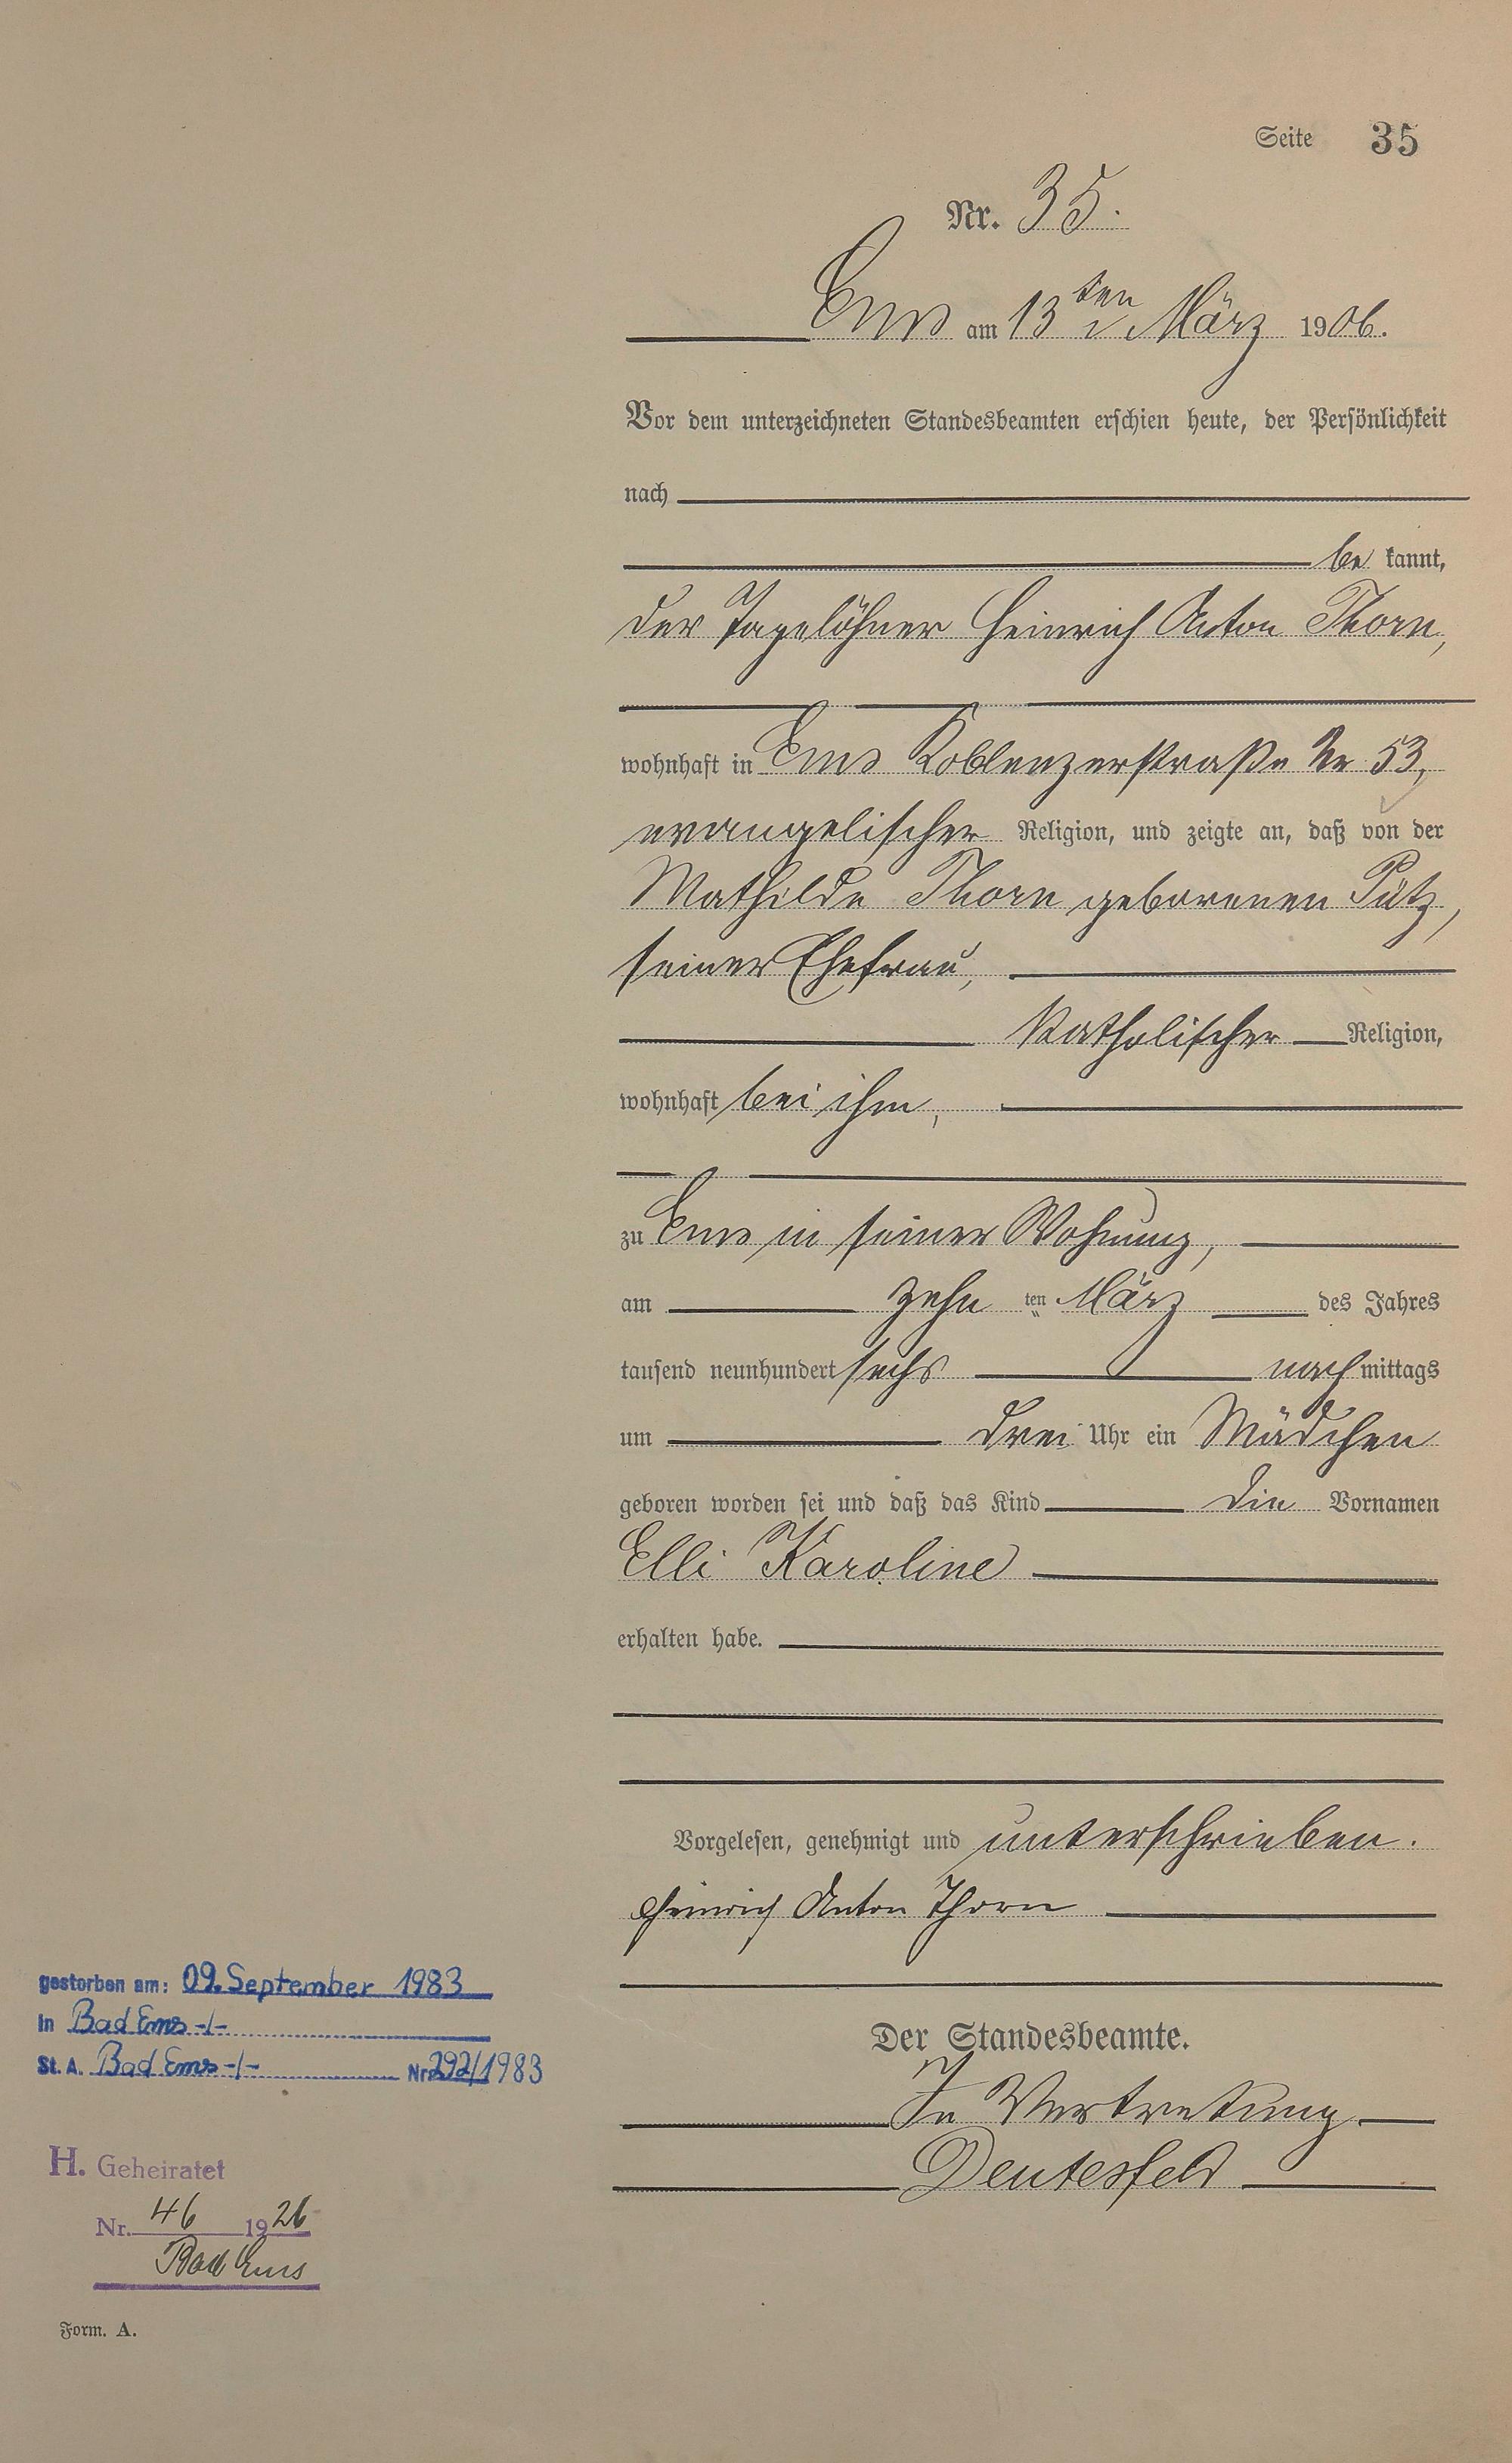 Seite 35
Nr. 35.
Ems am 13ten März 1906.
Vor dem unterzeichneten Standesbeamten erschien heute, der Persönlichkeit
nach
be kannt,
der Tagelöhner Heinrich Anton Thorn,
wohnhaft in Ems Koblenzerstraße Nr 53,
evangelischer Religion, und zeigte an, daß von der
Mathilde Thorn geborenen Pütz,
seiner Ehefrau,
katholischer Religion,
wohnhaft bei ihm,
zu Ems in seiner Wohnung,
am zehn ten März des Jahres
tausend neunhundert sechs nach mittags
um drei Uhr ein Mädchen
geboren worden sei und daß das Kind die Vornamen
Elli Karoline
erhalten habe.
Vorgelesen, genehmigt und unterschrieben.
Heinrich Anton Thorn
Der Standesbeamte.
In Vertretung
Deutesfeld
gestorben am: 09. September 1983
in Bad Ems -/-
St. A. Bad Ems -/- Nr. 292/1983
H. Geheiratet
Nr. 46 1926
Bad Ems
Form. A.